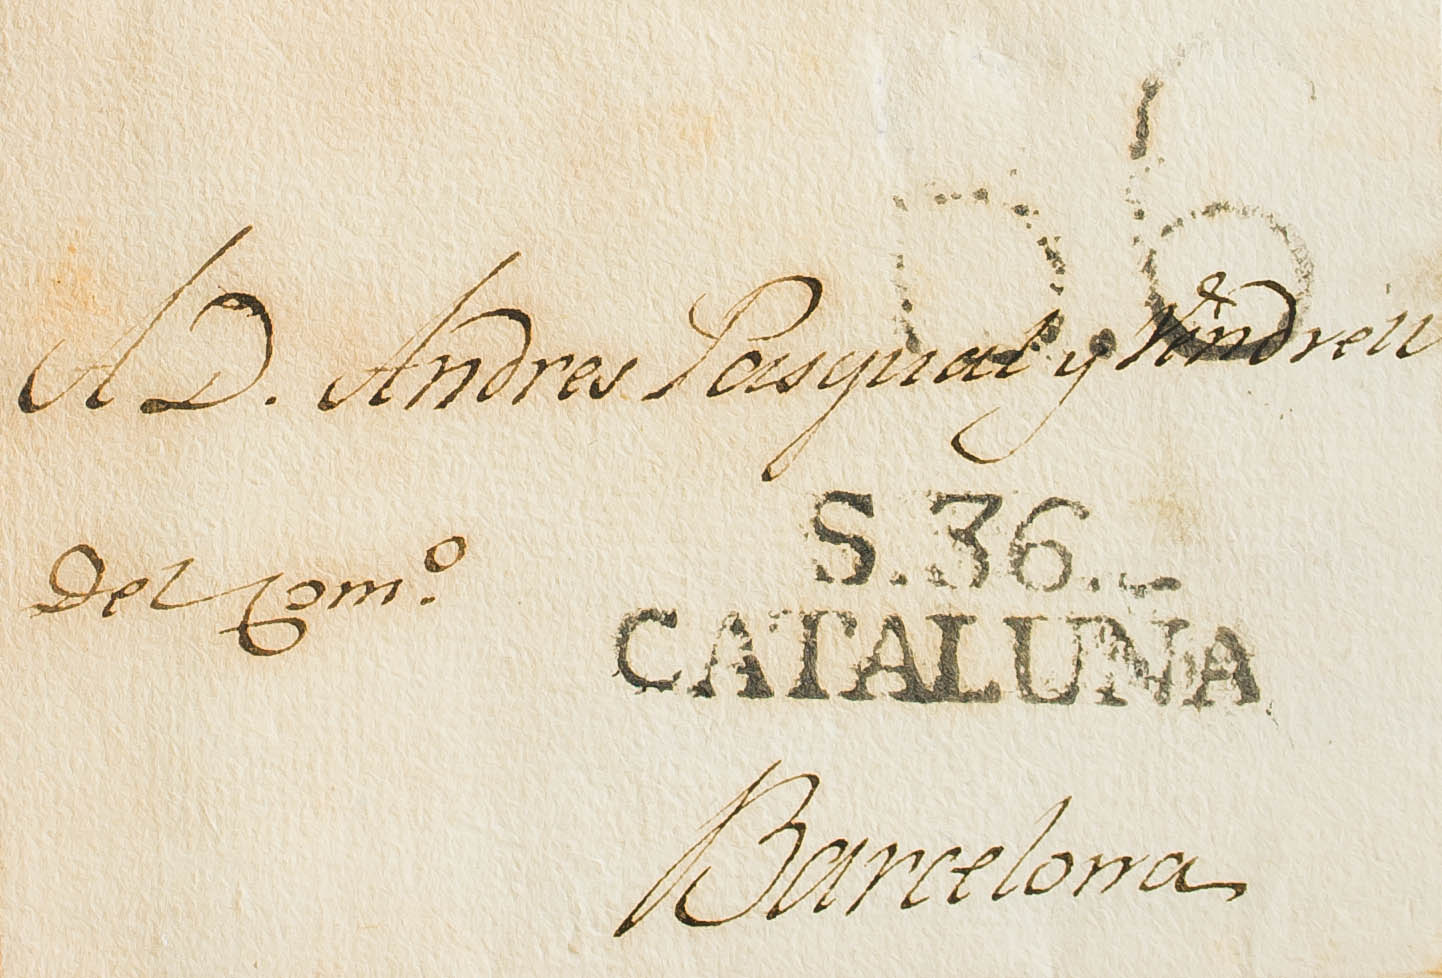 D.6
A D. Andres Pasqual y Vendrell
Del Com.º
S.36.
CATALUÑA
Barcelona